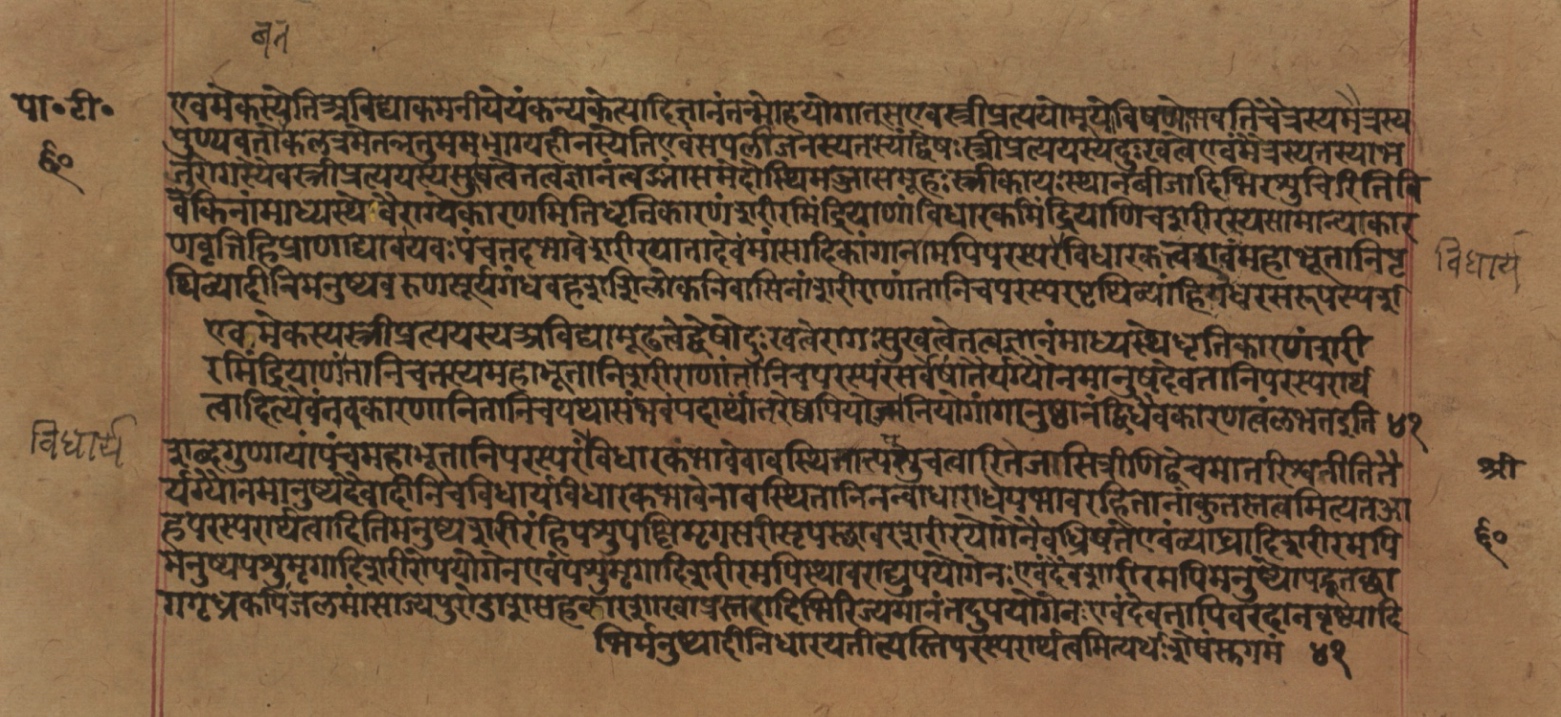 बत
पा॰ टी॰
६०
एवमेकस्येतिअविद्याकमनीयेयंकन्यकेत्यादिज्ञानंतन्मोहयोगात्सएवस्त्रीप्रत्ययोमूढोविषण्णोभवतिचैत्रस्यमैत्रस्य
पुण्यवतोकलत्रमेतन्नतुममभाग्यहीनस्येतिएवंसपत्नीजनस्यतस्यांद्वेषःस्त्रीप्रत्ययस्यदुःखत्वेएवंमैत्रस्यतस्याभ
र्तूरागस्येवस्त्रीप्रत्ययस्यसुखत्वेतत्वज्ञानंत्वङ्मांसमेदोस्थिमज्जासमूहःस्त्रीकायःस्थानबीजादिभिरशुचिरितिवि
वेकिनांमाध्यस्थेवैराग्येकारणमितिधृतिकारणंशरीरमिंद्रियाणांविधारकमिंद्रियाणिचशरीरस्यसामान्याकार
णवृत्तिर्हिप्राणाद्यावयवःपंचतदभावेशरीरयातादेवंमांसादिकांगानामपिपरस्परंविधारकत्वएवंमहाभूतानिपृ
थिव्यादीनिमनुष्यवरुणसूर्यगंधवहशशिलोकनिवासिनांशरीराणांतानिचपरस्परंपृथिव्यांहिगंधरसरूपस्पर्श
विधार्य
एवमेकस्यस्त्रीप्रत्ययस्यअविद्यामूढत्वेद्वेषोदुःखत्वेरागःसुखत्वेतत्वज्ञानंमाध्यस्थेधृतिकारणंशरी
रमिंद्रियाणांतानिचतस्यमहाभूतानिशरीराणांतानिचपरस्परंसर्वेषांतैर्यग्योनमानुषदैवतानिपरस्परार्थ
त्वादित्येवंनवकारणानितानिचयथासंभवंपदार्थांतरेष्वपियोज्यानियोगांगानुष्ठानंद्विधैवकारणत्वंलभतइति ४१
विधार्य
शब्दगुणायांपंचमहाभूतानिपरस्परंविधारकभावेनावस्थितान्यप्सुचत्वारितेजसित्रीणिद्वेचमातरिश्वनीतितै
र्यग्यौनमानुष्यदैवादीनिचविधार्यविधारकभावेनावस्थितानिनन्वाधाराधेयभावरहितानांकुतस्तत्वमित्यतआ
हपरस्परार्थत्वादितिमनुष्यशरीरंहिपशुपक्षिमृगसरीसृपस्थावरशरीरयोगेनैवध्रियतेएवंव्याघ्रादिशरीरमपि
मनुष्यपशुमृगादिशरीरोपयोगेनएवंपशुमृगादिशरीरमपिस्थावराद्युपयोगेनःएवंदेवशरीरमपिमनुष्योपहृतछा
गगृध्रकपिंजलमांसाज्यपुरोडाशसहकारशाखाप्रस्तरादिभिरिज्यमानंतदुपयोगेनःएवंदेवतापिवरदानवृष्ट्यादि
भिर्मनुष्यादीनिधारयतीत्यस्तिपरस्परार्थत्वमित्यर्थःशेषंसुगमं ४१
श्री
६०